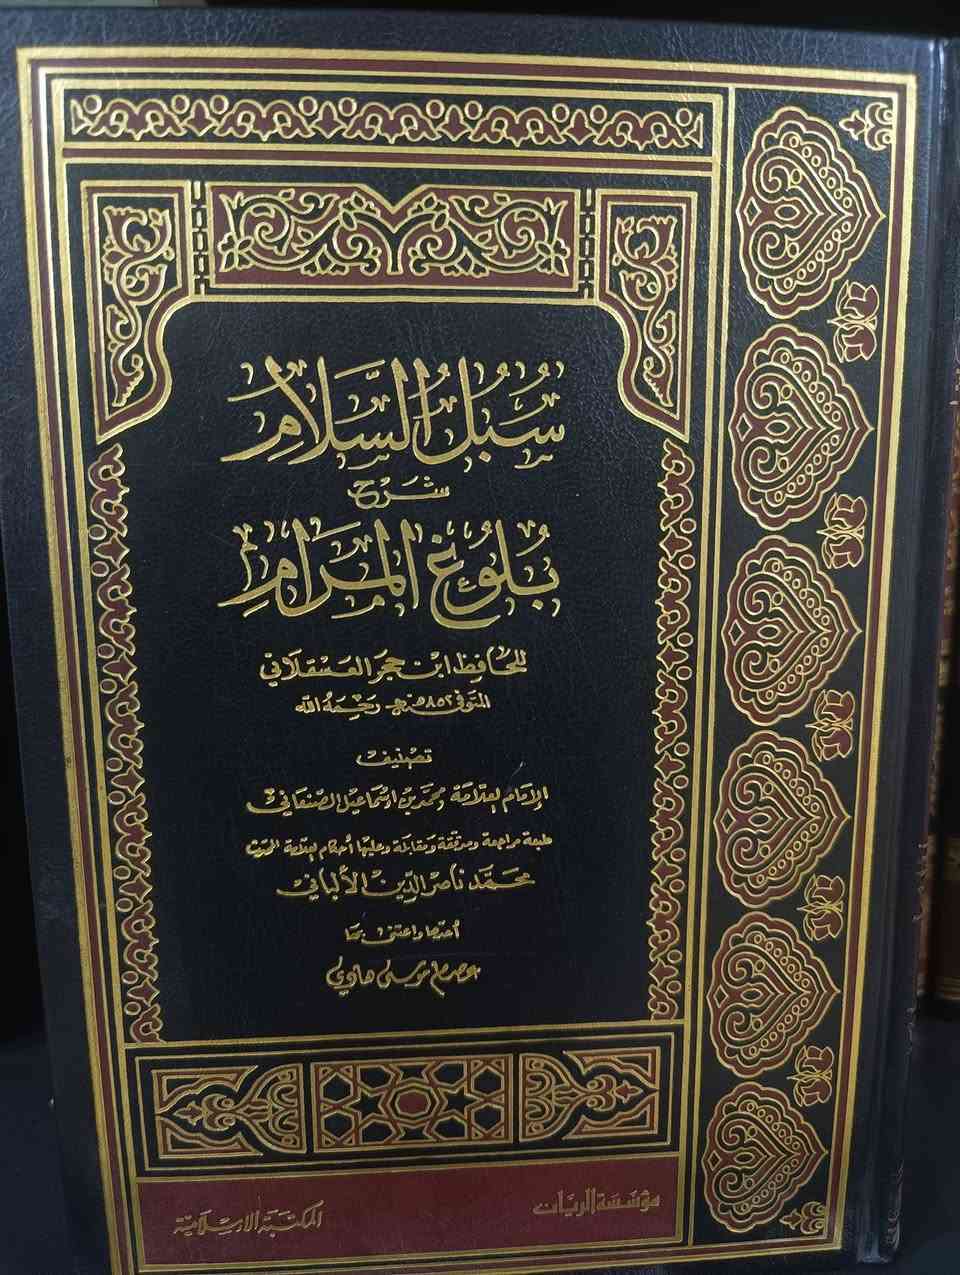 سُبُلُ السَّلَامِ
شَرْح
بُلُوغِ المَرَامِ
للحَافِظ ابْن حَجَر العَسْقَلَاني
المتوفى سنة ٨٥٢ هـ رَحِمَهُ الله
تصنيف
الإمَام العلّامَة محمّد بن اسْمَاعيل الصّنعَاني
طبعة مراجعة ومدققة ومقابلة وعليها أحكام العلامة المحدث
محَمَّد نَاصر الدِّين الألبَاني
أعدها واعتنى بها
عصام موسى هادي
مؤسَسَة الريَان
المكتَبَة الإسْلَاميّة